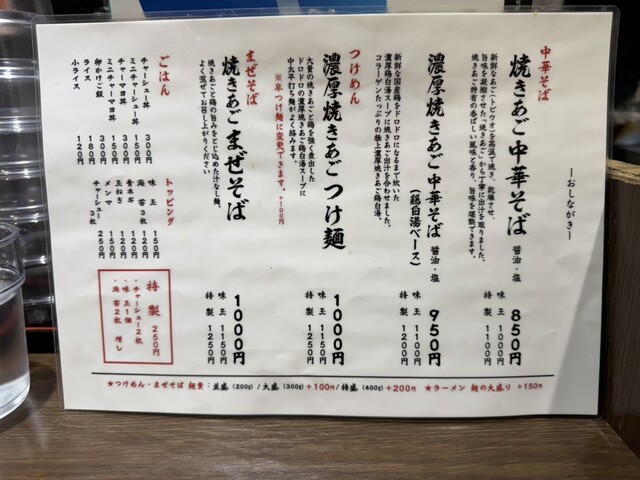 ーおしながきー
中華そば
焼きあご中華そば 醤油・塩 850円
新鮮なあご(トビウオ)を高温で焼き、乾燥させ、
旨味を凝縮させた「焼きあご」から丁寧に出汁を取りました。
焼きあご特有の香ばしい風味と香り、旨味を堪能できます。
味玉 1000円
特製 1100円
濃厚焼きあご中華そば 醤油・塩 950円
(鶏白湯ベース)
新鮮な国産鶏をドロドロになるまで炊いた
濃厚鶏白湯スープに焼きあご出汁を合わせました。
コラーゲンたっぷりの極上濃厚焼きあご鶏白湯。
味玉 1100円
特製 1200円
つけめん
濃厚焼きあごつけ麺 1000円
大量の焼きあごと鶏を強く煮出した
ドロドロの濃厚焼きあご鶏白湯スープに
中太平打ち麺がよく絡みます。
※辛つけ麺に変更できます。+100円
味玉 1150円
特製 1250円
まぜそば
焼きあごまぜそば 1000円
焼きあごと鶏の旨みをとじ込めた汁なし麺。
よく混ぜてお召し上がりください
味玉 1150円
特製 1250円
ごはん
チャーシュー丼 300円
ミニチャーシュー丼 150円
チャーマヨ丼 300円
ミニチャーマヨ丼 150円
卵かけご飯 180円
ライス 150円
小ライス 120円
トッピング
味玉 150円
海苔3枚 120円
青ネギ 120円
玉ねぎ 120円
メンマ 150円
チャーシュー3枚 250円
特製 250円
・チャーシュー2枚
・味玉1個
・海苔2枚 増し
★つけめん・まぜそば 麺量:並盛(200g)/大盛(300g)+100円/特盛(400g)+200円 ★ラーメン 麺の大盛り +150円